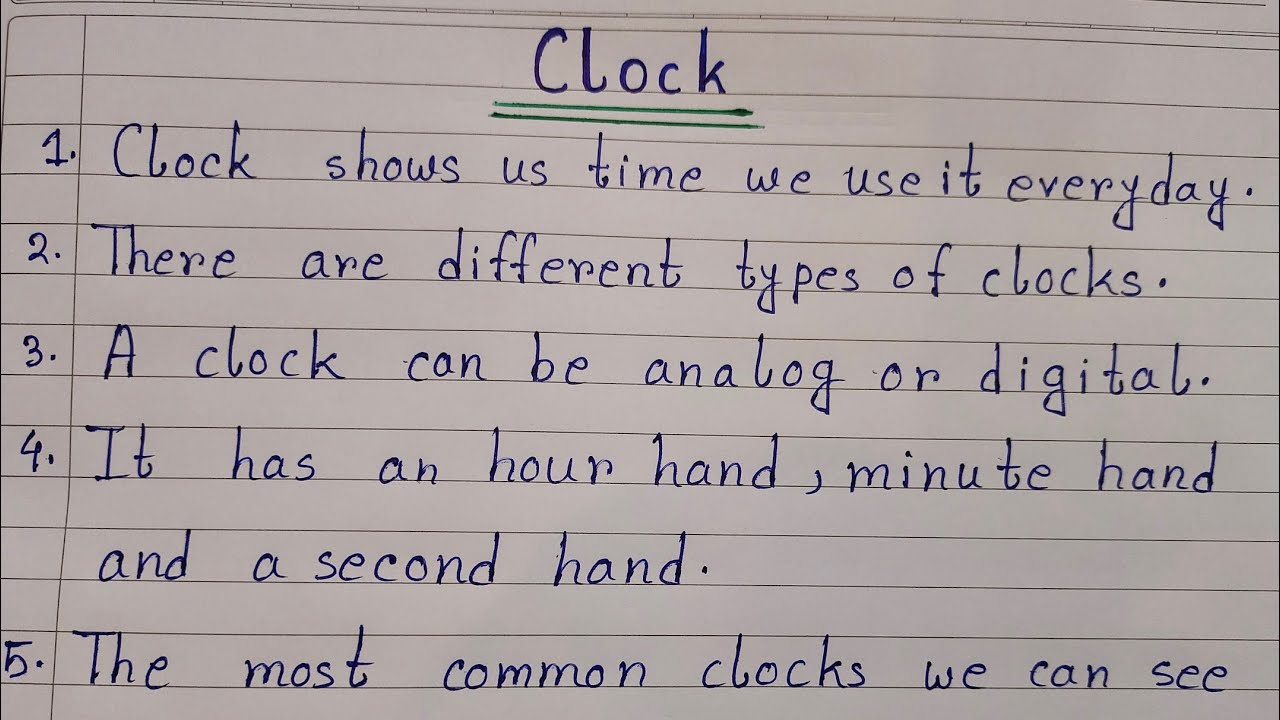 Clock
1. Clock shows us time we use it everyday.
2. There are different types of clocks.
3. A clock can be analog or digital.
4. It has an hour hand, minute hand
and a second hand.
5. The most common clocks we can see